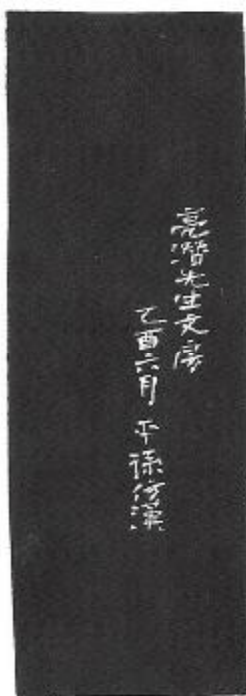 亮潛先生文房
乙酉六月 平孫作漢